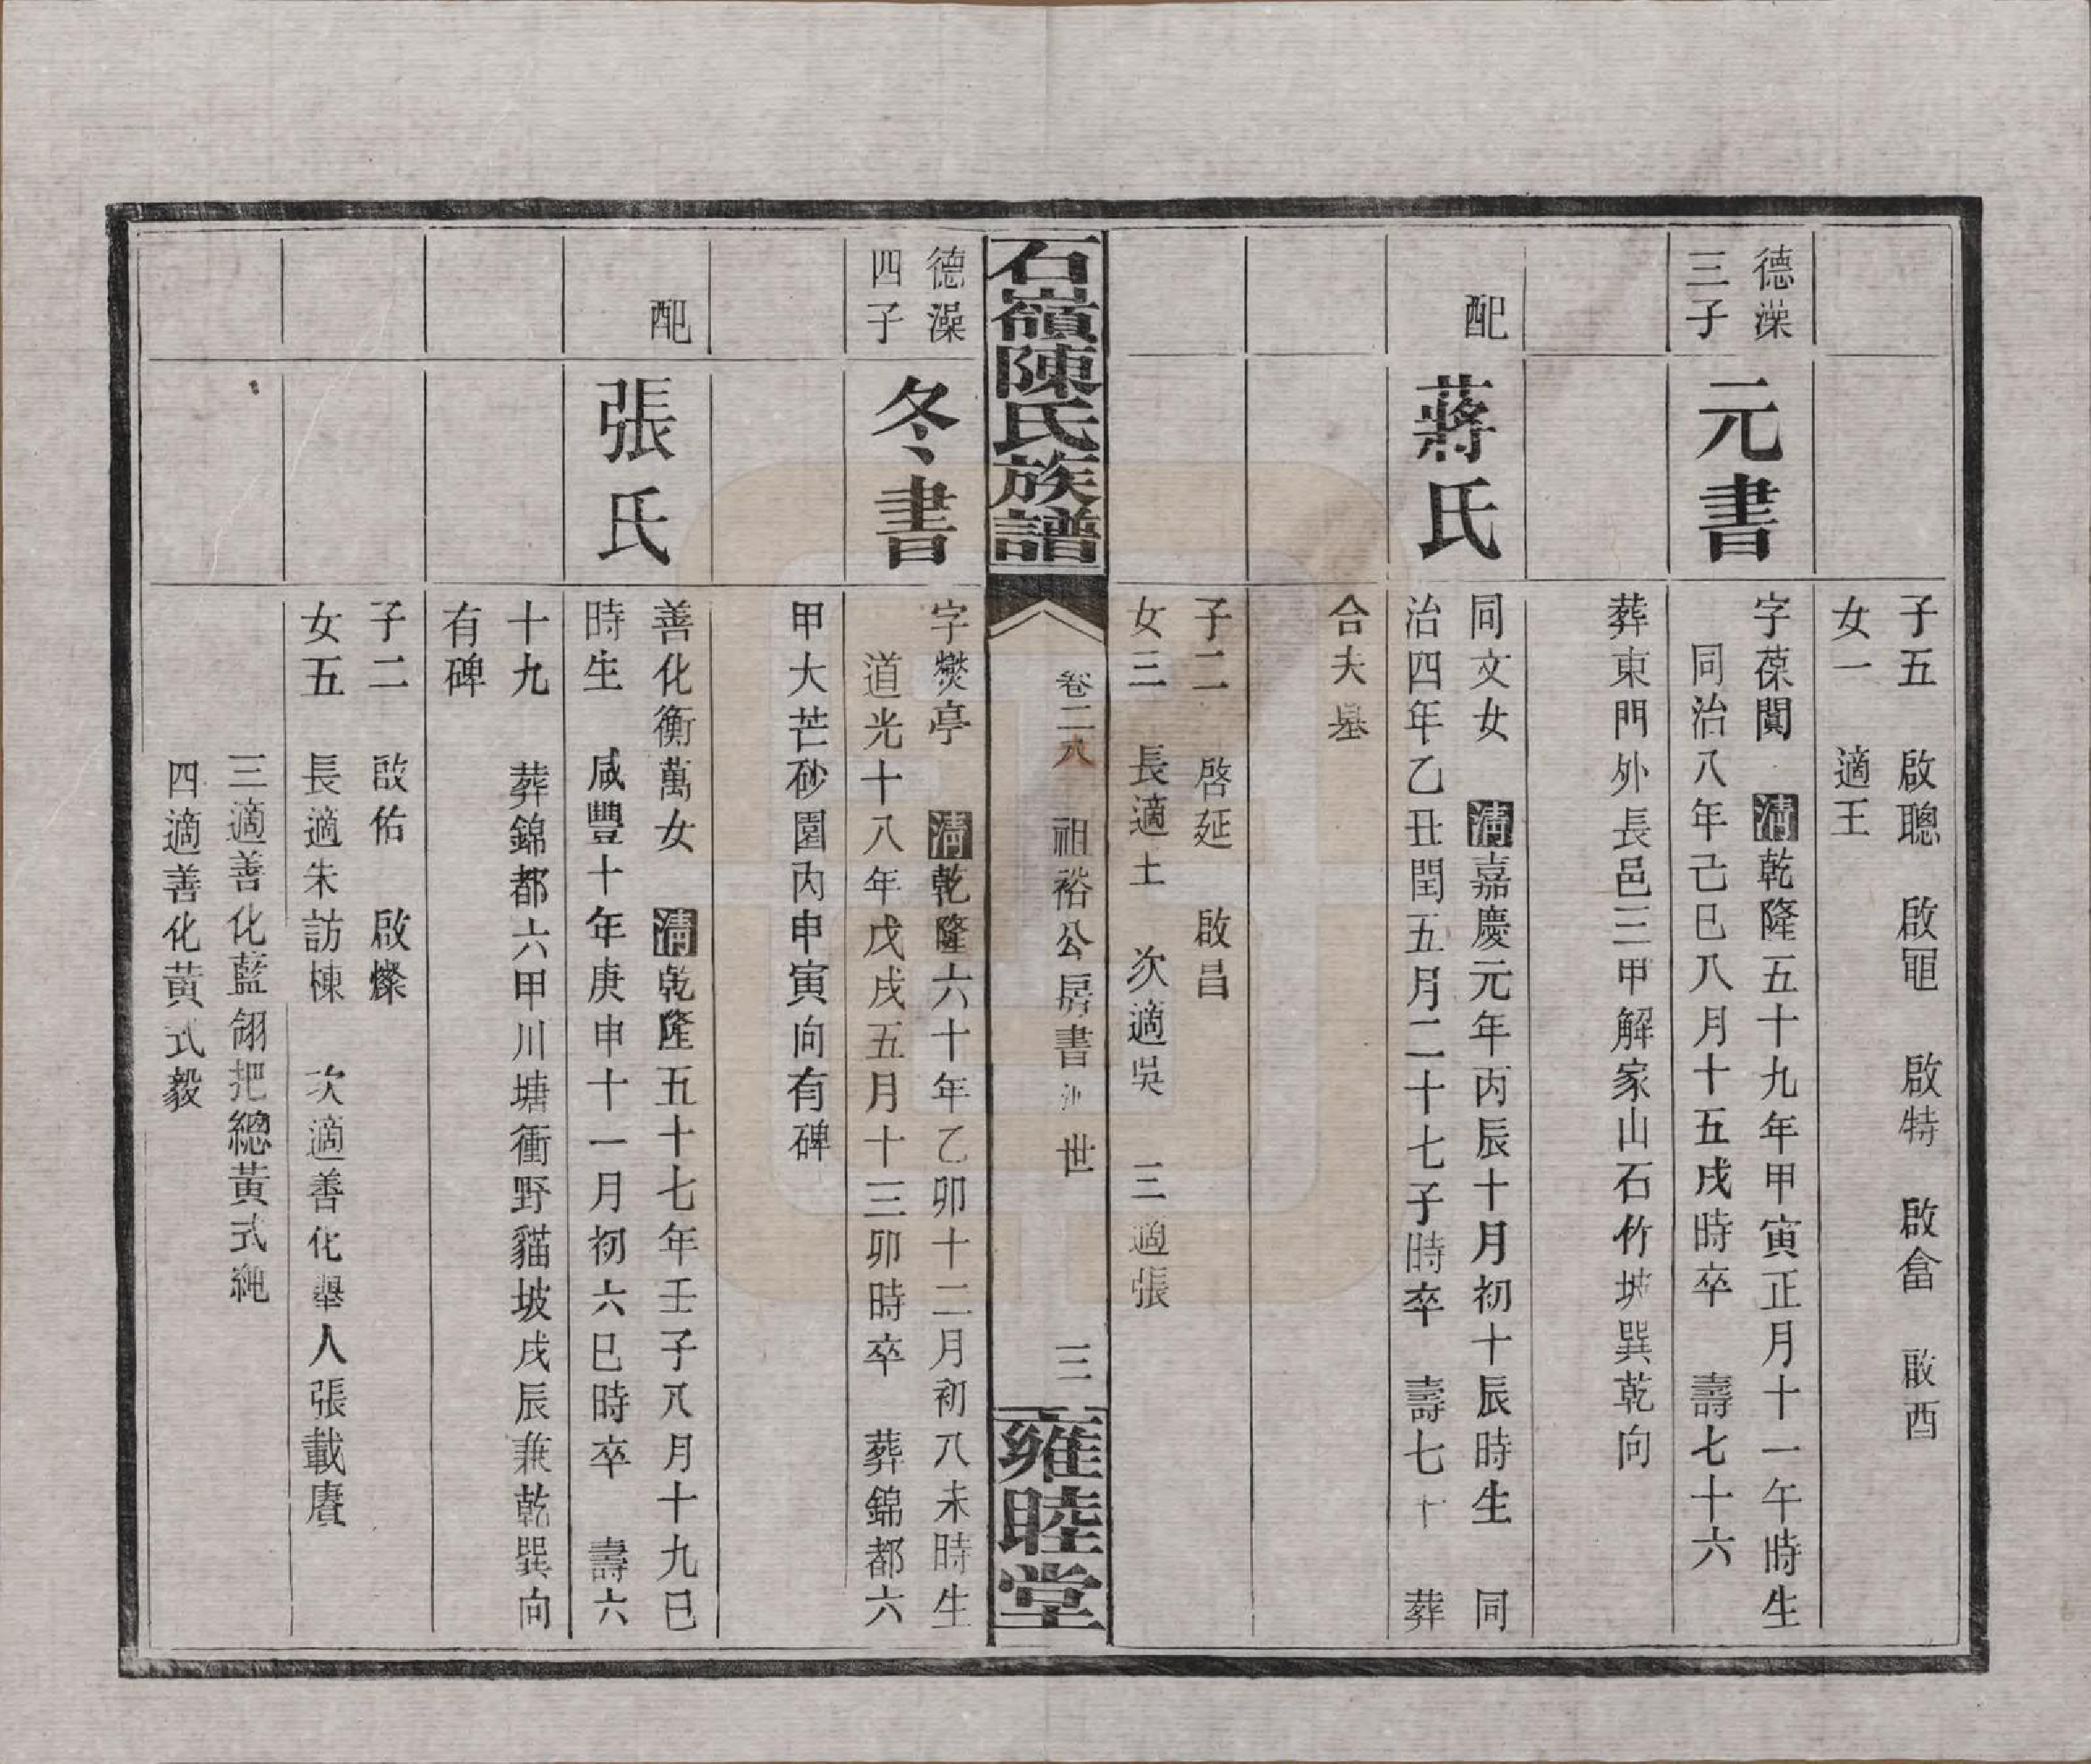 子五 啟聰 啟黽 啟特 啟畲 啟酉
女一 適王
德澡
三子
元書
字葆闐 清乾隆五十九年甲寅正月十一午時生
同治八年己巳八月十五戌時卒 壽七十六
葬東門外長邑三甲解家山石竹坡巽乾向
配
蔣氏
同文女 清嘉慶元年丙辰十月初十辰時生 同
治四年乙丑閏五月二十七子時卒 壽七十 葬
合夫墓
子二 啓延 啟昌
女三 長適土 次適吳 三適張
石嶺陳氏族譜
卷二八 祖裕公房書 世 三
雍睦堂
德澡
四子
冬書
字爕亭 清乾隆六十年乙卯十二月初八未時生
道光十八年戊戌五月十三卯時卒 葬錦都六
甲大芒砂園內申寅向有碑
配
張氏
善化衡萬女 清乾隆五十七年壬子八月十九巳
時生 咸豐十年庚申十一月初六巳時卒 壽六
十九 葬錦都六甲川塘衝野貓坡戌辰兼乾巽向
有碑
子二 啟佑 啟燦
女五 長適朱訪棟 次適善化舉人張載賡
三適善化藍翎把總黃式繩
四適善化黃式毅